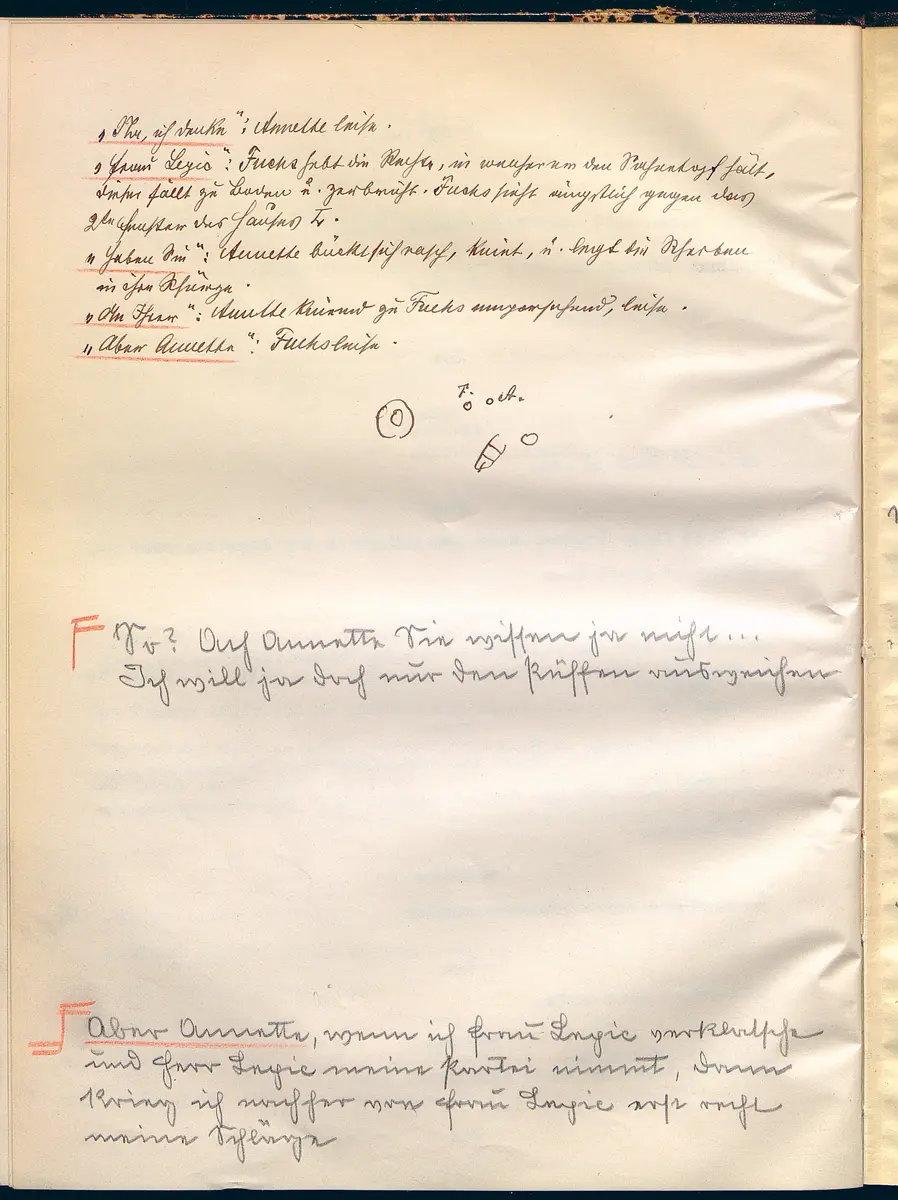 „Ihr, ich denke“: Annette leise.
„Frau Lepic“: Fuchs hebt die Rechte, in welcher er den Rahmtopf hält,
dieser fällt zu Boden u. zerbricht. Fuchs sieht ängstlich gegen das
2te Fenster des Hauses I.
„Haben Sie“: Annette bückt sich rasch, kniet, u. legt die Scherben
in ihre Schürze.
„An Ihrer“: Annette knieend zu Fuchs emporsehend, leise.
„Aber Annette“: Fuchs leise.
F. A.
F So? Ach Annette Sie wissen ja nicht...
Ich will ja doch nur den Püffen ausweichen
F Aber Annette, wenn ich Frau Lepic verklatsche
und Herr Lepic meine Partei nimmt, dann
krieg ich nachher von Frau Lepic erst recht
meine Schläge